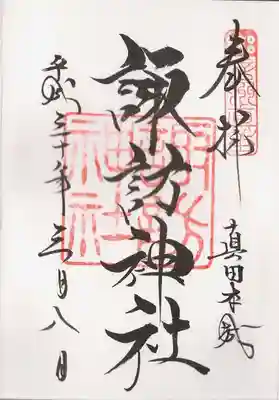 奉拝
真田本城
諏訪神社
平成三十年三月八日